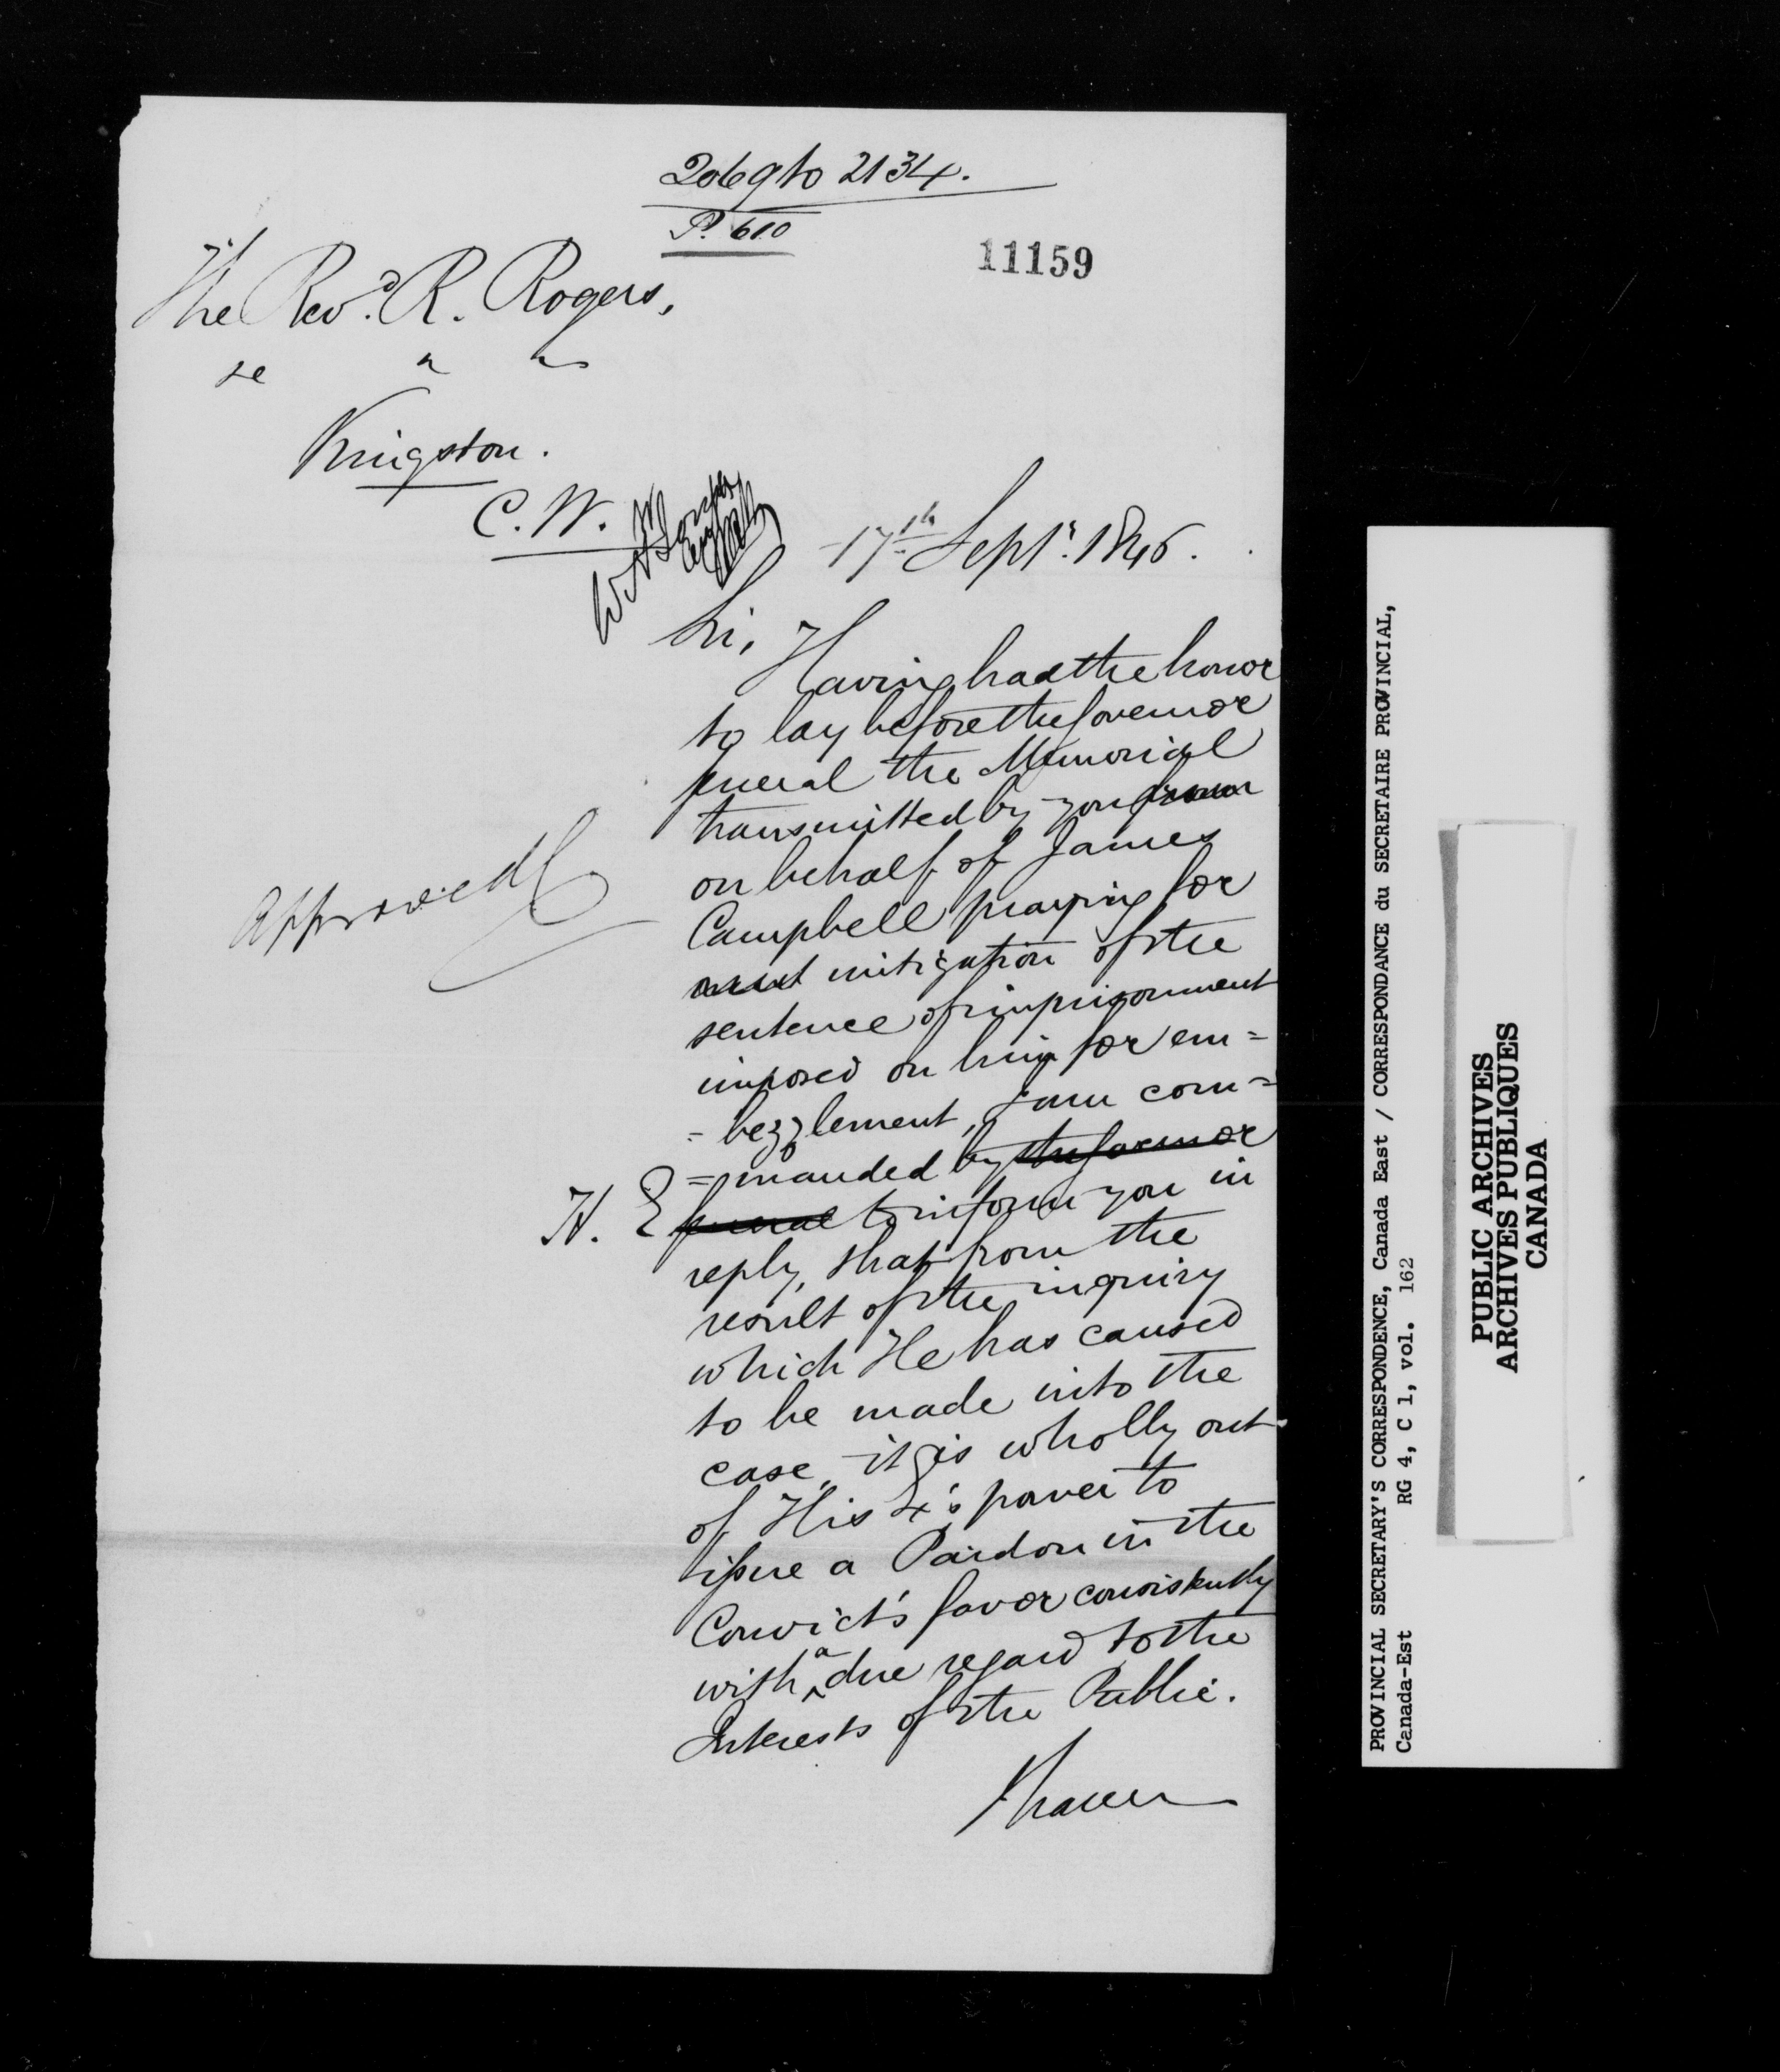 2069 to 2134.
P. 610
11159
The Revd. R. Rogers,
&c " "
Kingston.
C. W.
17th Septr. 1846.
Sir,
Having had the honor
to lay before the Governor
General the Memorial
transmitted by you
on behalf of James
Campbell praying for
mitigation of the
sentence of imprisonment
imposed on him for em=
=bezzlement, I am com=
=manded by the Governor
H. E. General to inform you in
reply, that from the
result of the inquiry
which He has caused
to be made into the
case, it is wholly out
of His Ex's power to
issue a Pardon in the
Convict's favor consistently
with a due regard to the
Interests of the Public.
I have
Approved
PROVINCIAL SECRETARY'S CORRESPONDENCE, Canada East / CORRESPONDANCE du SECRETAIRE PROVINCIAL,
Canada-Est RG 4, C 1, vol. 162
PUBLIC ARCHIVES
ARCHIVES PUBLIQUES
CANADA